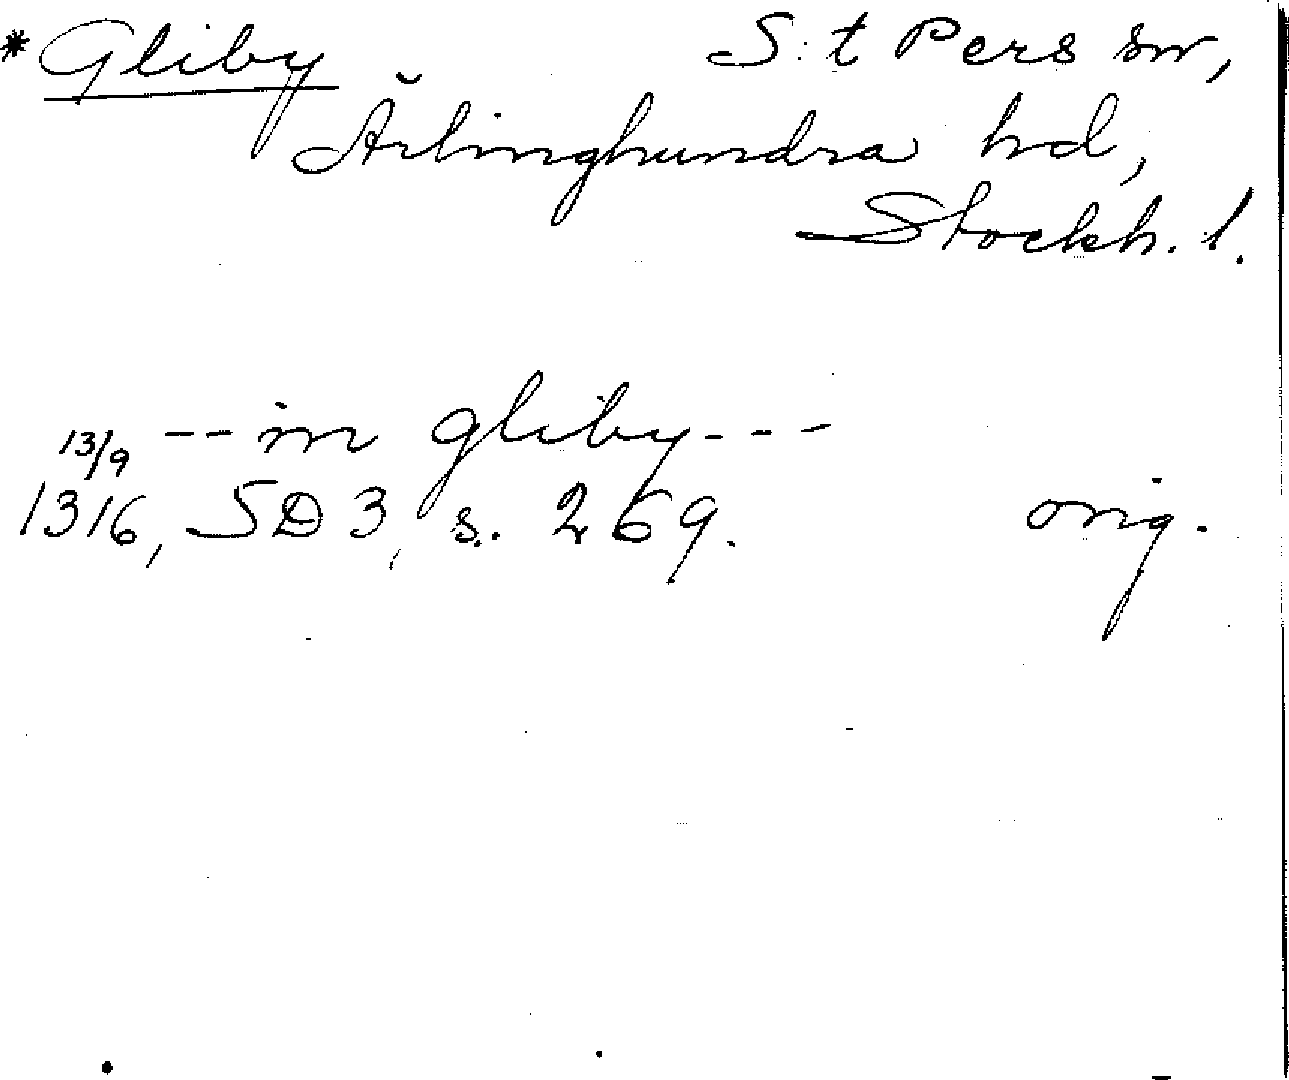 *Gliby S:t Pers sn,
Ärlinghundra hd,
Stockh. l.
13/9 -- in gliby ---
1316, SD 3, s. 269. orig.